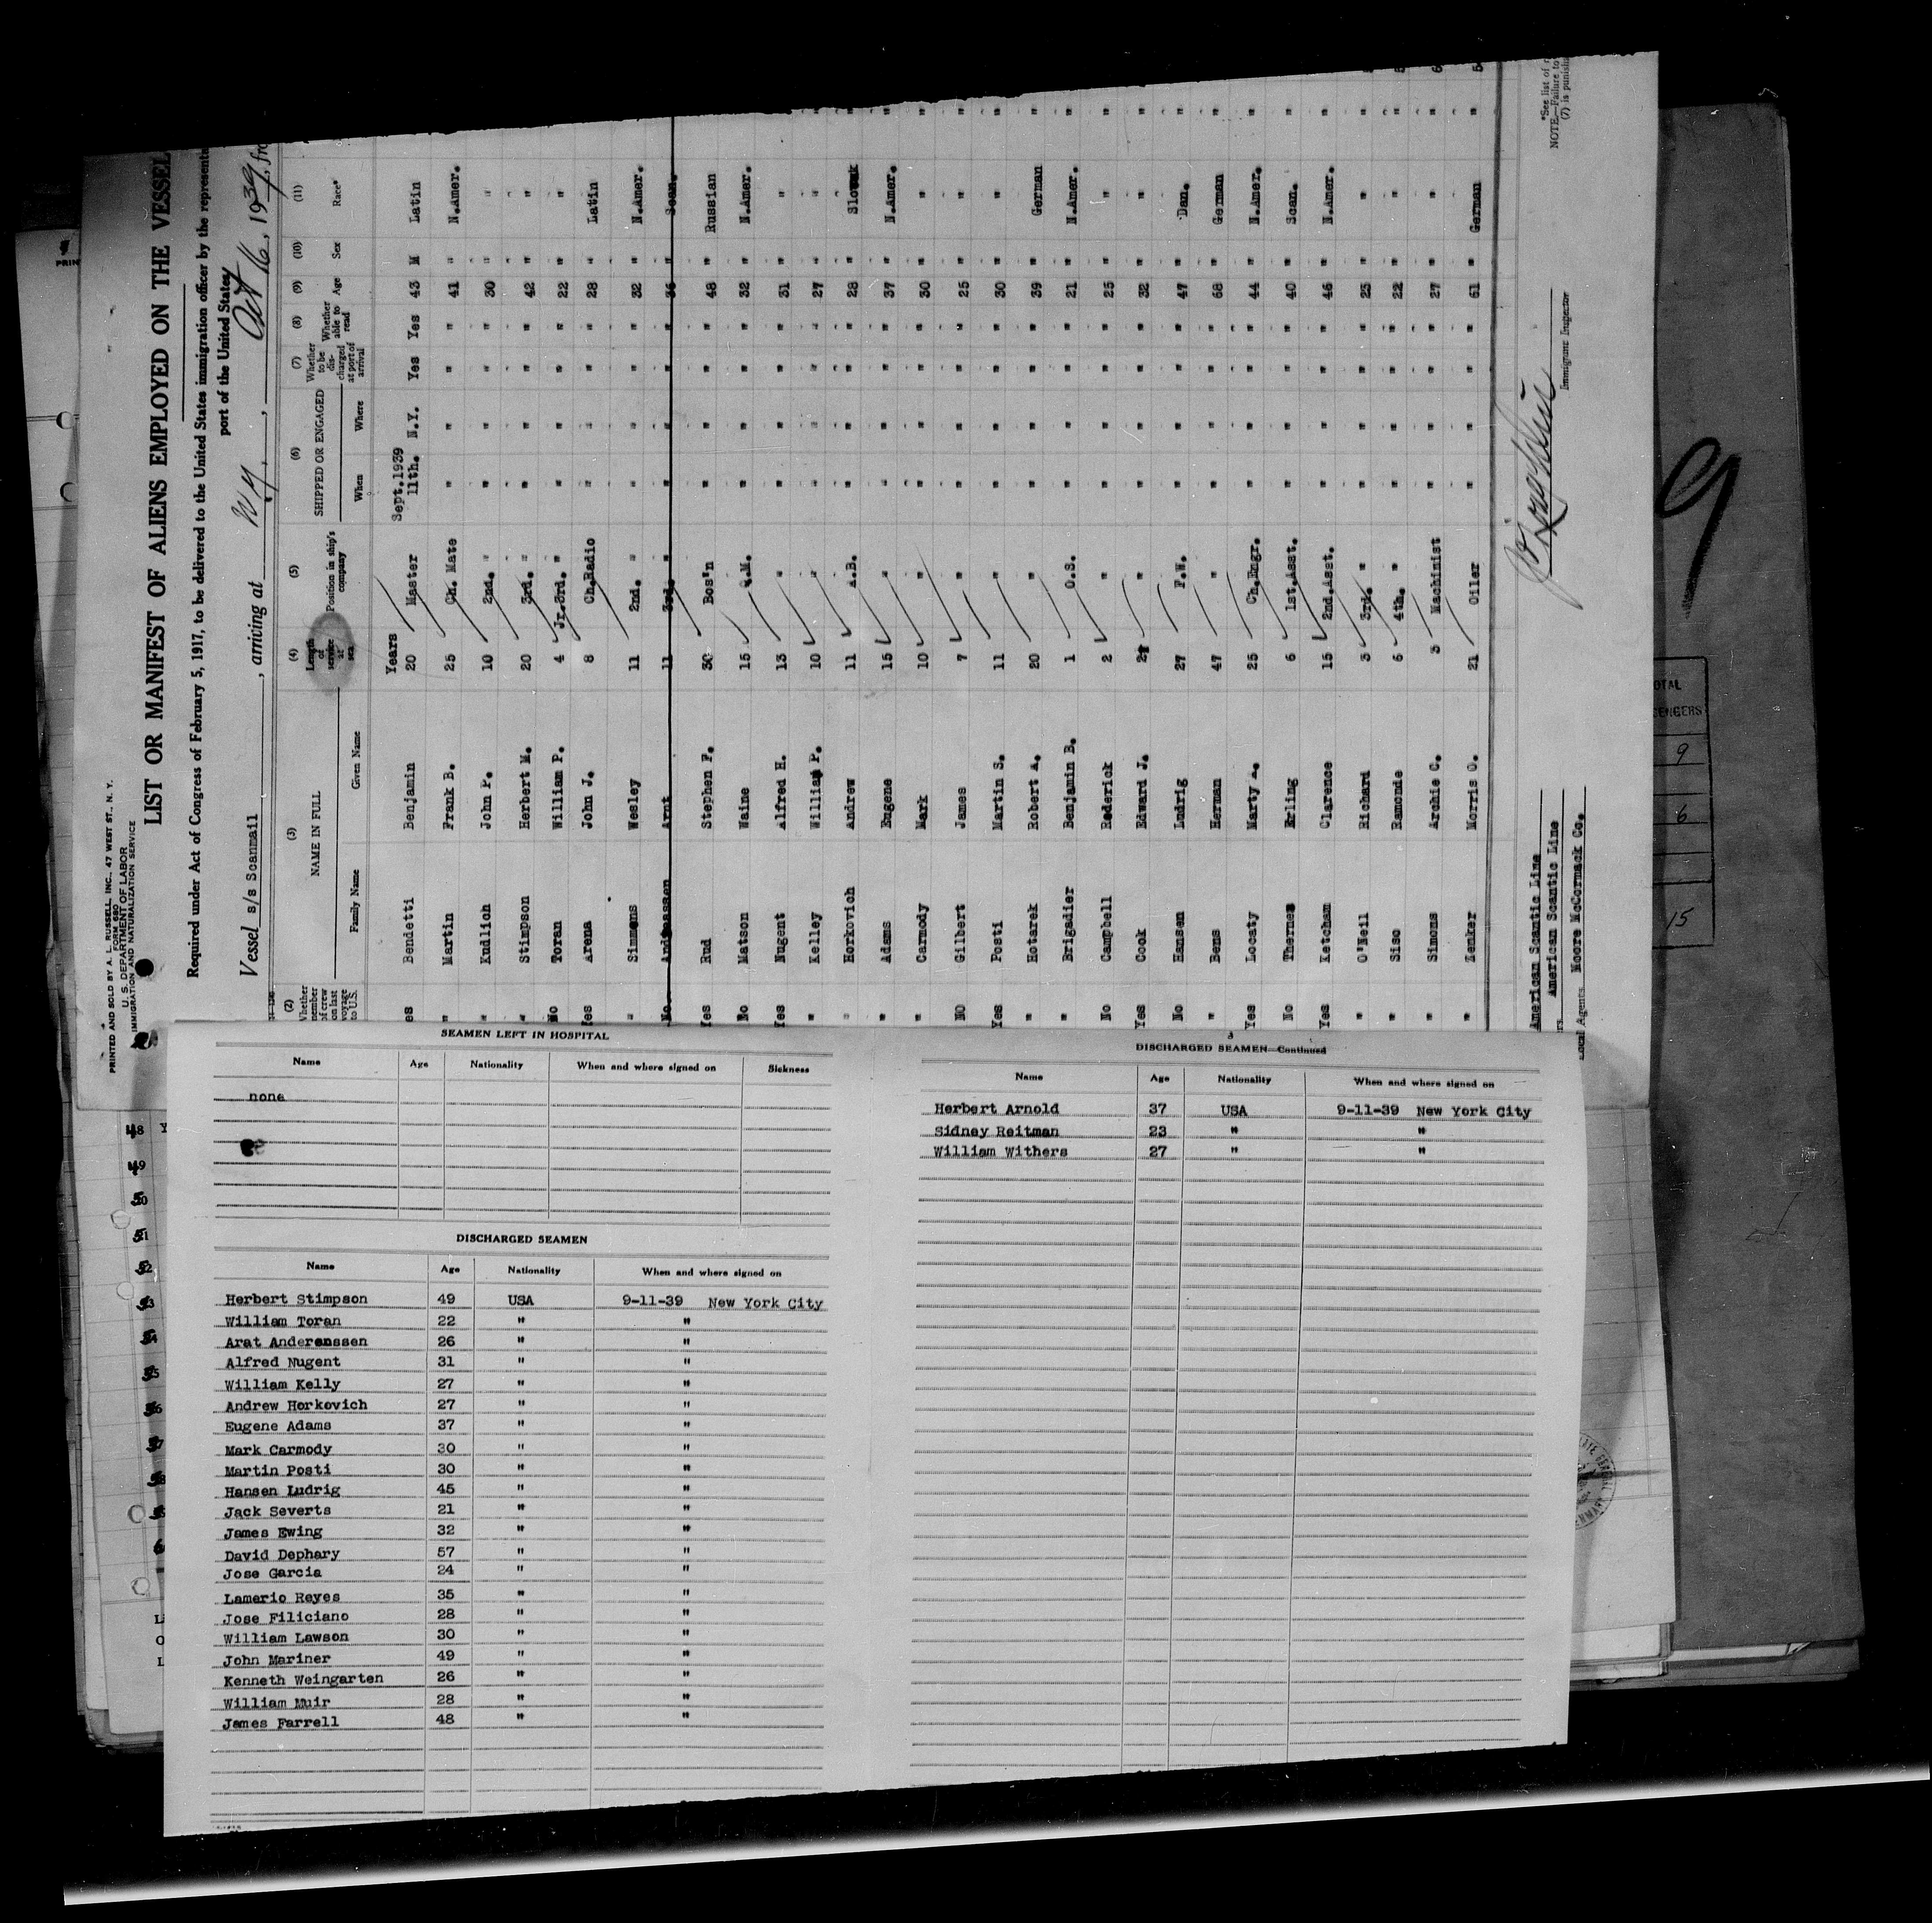 PRINTED AND SOLD BY A. L. RUSSELL, INC., 47 WEST ST., N. Y.
FORM 680
U. S. DEPARTMENT OF LABOR
IMMIGRATION AND NATURALIZATION SERVICE
LIST OR MANIFEST OF ALIENS EMPLOYED ON THE VESSEL
Required under Act of Congress of February 5, 1917, to be delivered to the United States immigration officer by the represent
port of the United States
Vessel s/s Scanmail , arriving at N.Y. , Oct 16, 1939, fro
(2) (3) (4) (5) (6) (7) (8) (9) (10) (11)
Whether member of crew on last voyage to U.S. NAME IN FULL Length of service at sea Position in ship's company SHIPPED OR ENGAGED Whether to be discharged at port of arrival Whether able to read Age Sex Race*
Family Name Given Name When Where
Years Sept.1939
es Bendetti Benjamin 20 Master 11th. N.Y. Yes Yes 43 M Latin
" Martin Frank B. 25 Ch. Mate " " " " 41 " N.Amer.
" Kudlich John P. 10 2nd. " " " " " 30 " "
" Stimpson Herbert M. 20 3rd. " " " " " 42 " "
No Toran William P. 4 Jr.3rd. " " " " " 22 " "
Yes Arena John J. 8 Ch.Radio " " " " 28 " Latin
" Simmens Wesley 11 2nd. " " " " " 32 " N.Amer.
No. Arnt 11 3rd. " " " " " 36 " Scan.
Yes Rud Stephen F. 30 Bos'n " " " " 48 " Russian
No Matson Waine 15 Q.M. " " " " 32 " N.Amer.
Yes Nugent Alfred H. 13 " " " " " 31 " "
" Kelley William P. 10 " " " " " 27 " "
" Horkovich Andrew 11 A.B. " " " " 28 " Slovak
" Adams Eugene 15 " " " " " 37 " N.Amer.
" Carmody Mark 10 " " " " " 30 " "
NO Gilbert James 7 " " " " " 25 " "
Yes Posti Martin S. 11 " " " " " 30 " "
" Hotarek Robert A. 20 " " " " " 39 " German
" Brigadier Benjamin B. 1 O.S. " " " " 21 " N.Amer.
No Campbell Roderick 2 " " " " " 25 " "
Yes Cook Edward J. " " " " " 32 " "
No Hansen Ludrig 27 F.W. " " " " 47 " Dan.
" Bens Herman 47 " " " " " 68 " German
Yes Locaty Marty A. 25 Ch.Engr. " " " " 44 " N.Amer.
No Thernes Erling 6 1st.Asst. " " " " 40 " Scan.
Yes Ketcham Clarence 15 2nd.Asst. " " " " 46 " N.Amer.
" O'Neil Richard 3 3rd. " " " " " 25 " "
" Siso Ramonde 6 4th. " " " " " 22 " "
" Simons Archie C. 3 Machinist " " " " 27 " "
" Zenker Morris O. 21 Oiler " " " " 61 " German
American Scantic Line
American Scantic Line
Local Agents Moore McCormack Co.
Immigrant Inspector
*See list of r
NOTE.—Failure to
(7) is punish
9
OTAL
ENGERS
9
6
15
PRIN
48 Y
49
SEAMEN LEFT IN HOSPITAL
Name Age Nationality When and where signed on Sickness
none
DISCHARGED SEAMEN
Name Age Nationality When and where signed on
Herbert Stimpson 49 USA 9-11-39 New York City
William Toran 22 " "
Arat Anderenssen 26 " "
Alfred Nugent 31 " "
William Kelly 27 " "
Andrew Horkovich 27 " "
Eugene Adams 37 " "
Mark Carmody 30 " "
Martin Posti 30 " "
Hansen Ludrig 45 " "
Jack Severts 21 " "
James Ewing 32 " "
David Dephary 57 " "
Jose Garcia 24 " "
Lamerio Reyes 35 " "
Jose Filiciano 28 " "
William Lawson 30 " "
John Mariner 49 " "
Kenneth Weingarten 26 " "
William Muir 28 " "
James Farrell 48 " "
DISCHARGED SEAMEN—Continued
Name Age Nationality When and where signed on
Herbert Arnold 37 USA 9-11-39 New York City
Sidney Reitman 23 " "
William Withers 27 " "